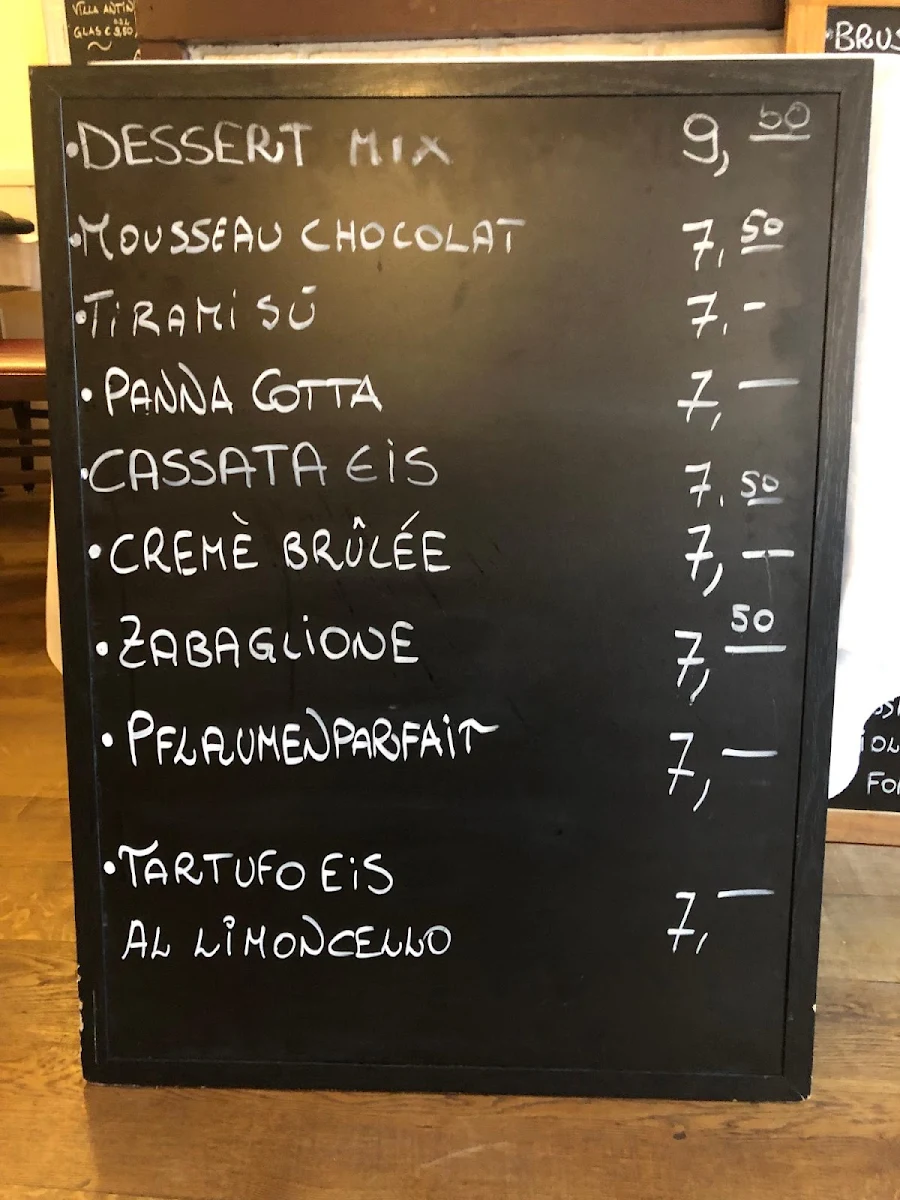 VILLA ANTIN
0.2L
GLAS € 9,50
BRUS
•DESSERT MIX 9,50
•MOUSSEAU CHOCOLAT 7,50
•TiRAMi SÚ 7.-
•PANNA COTTA 7,—
•CASSATA EiS 7.50
•CREMÈ BRÛLÉE 7,—
•ZABAGLiONE 7,50
•PFLAUMENPARFAiT 7,—
•TARTUFO EiS
AL LiMONCELLO 7,—